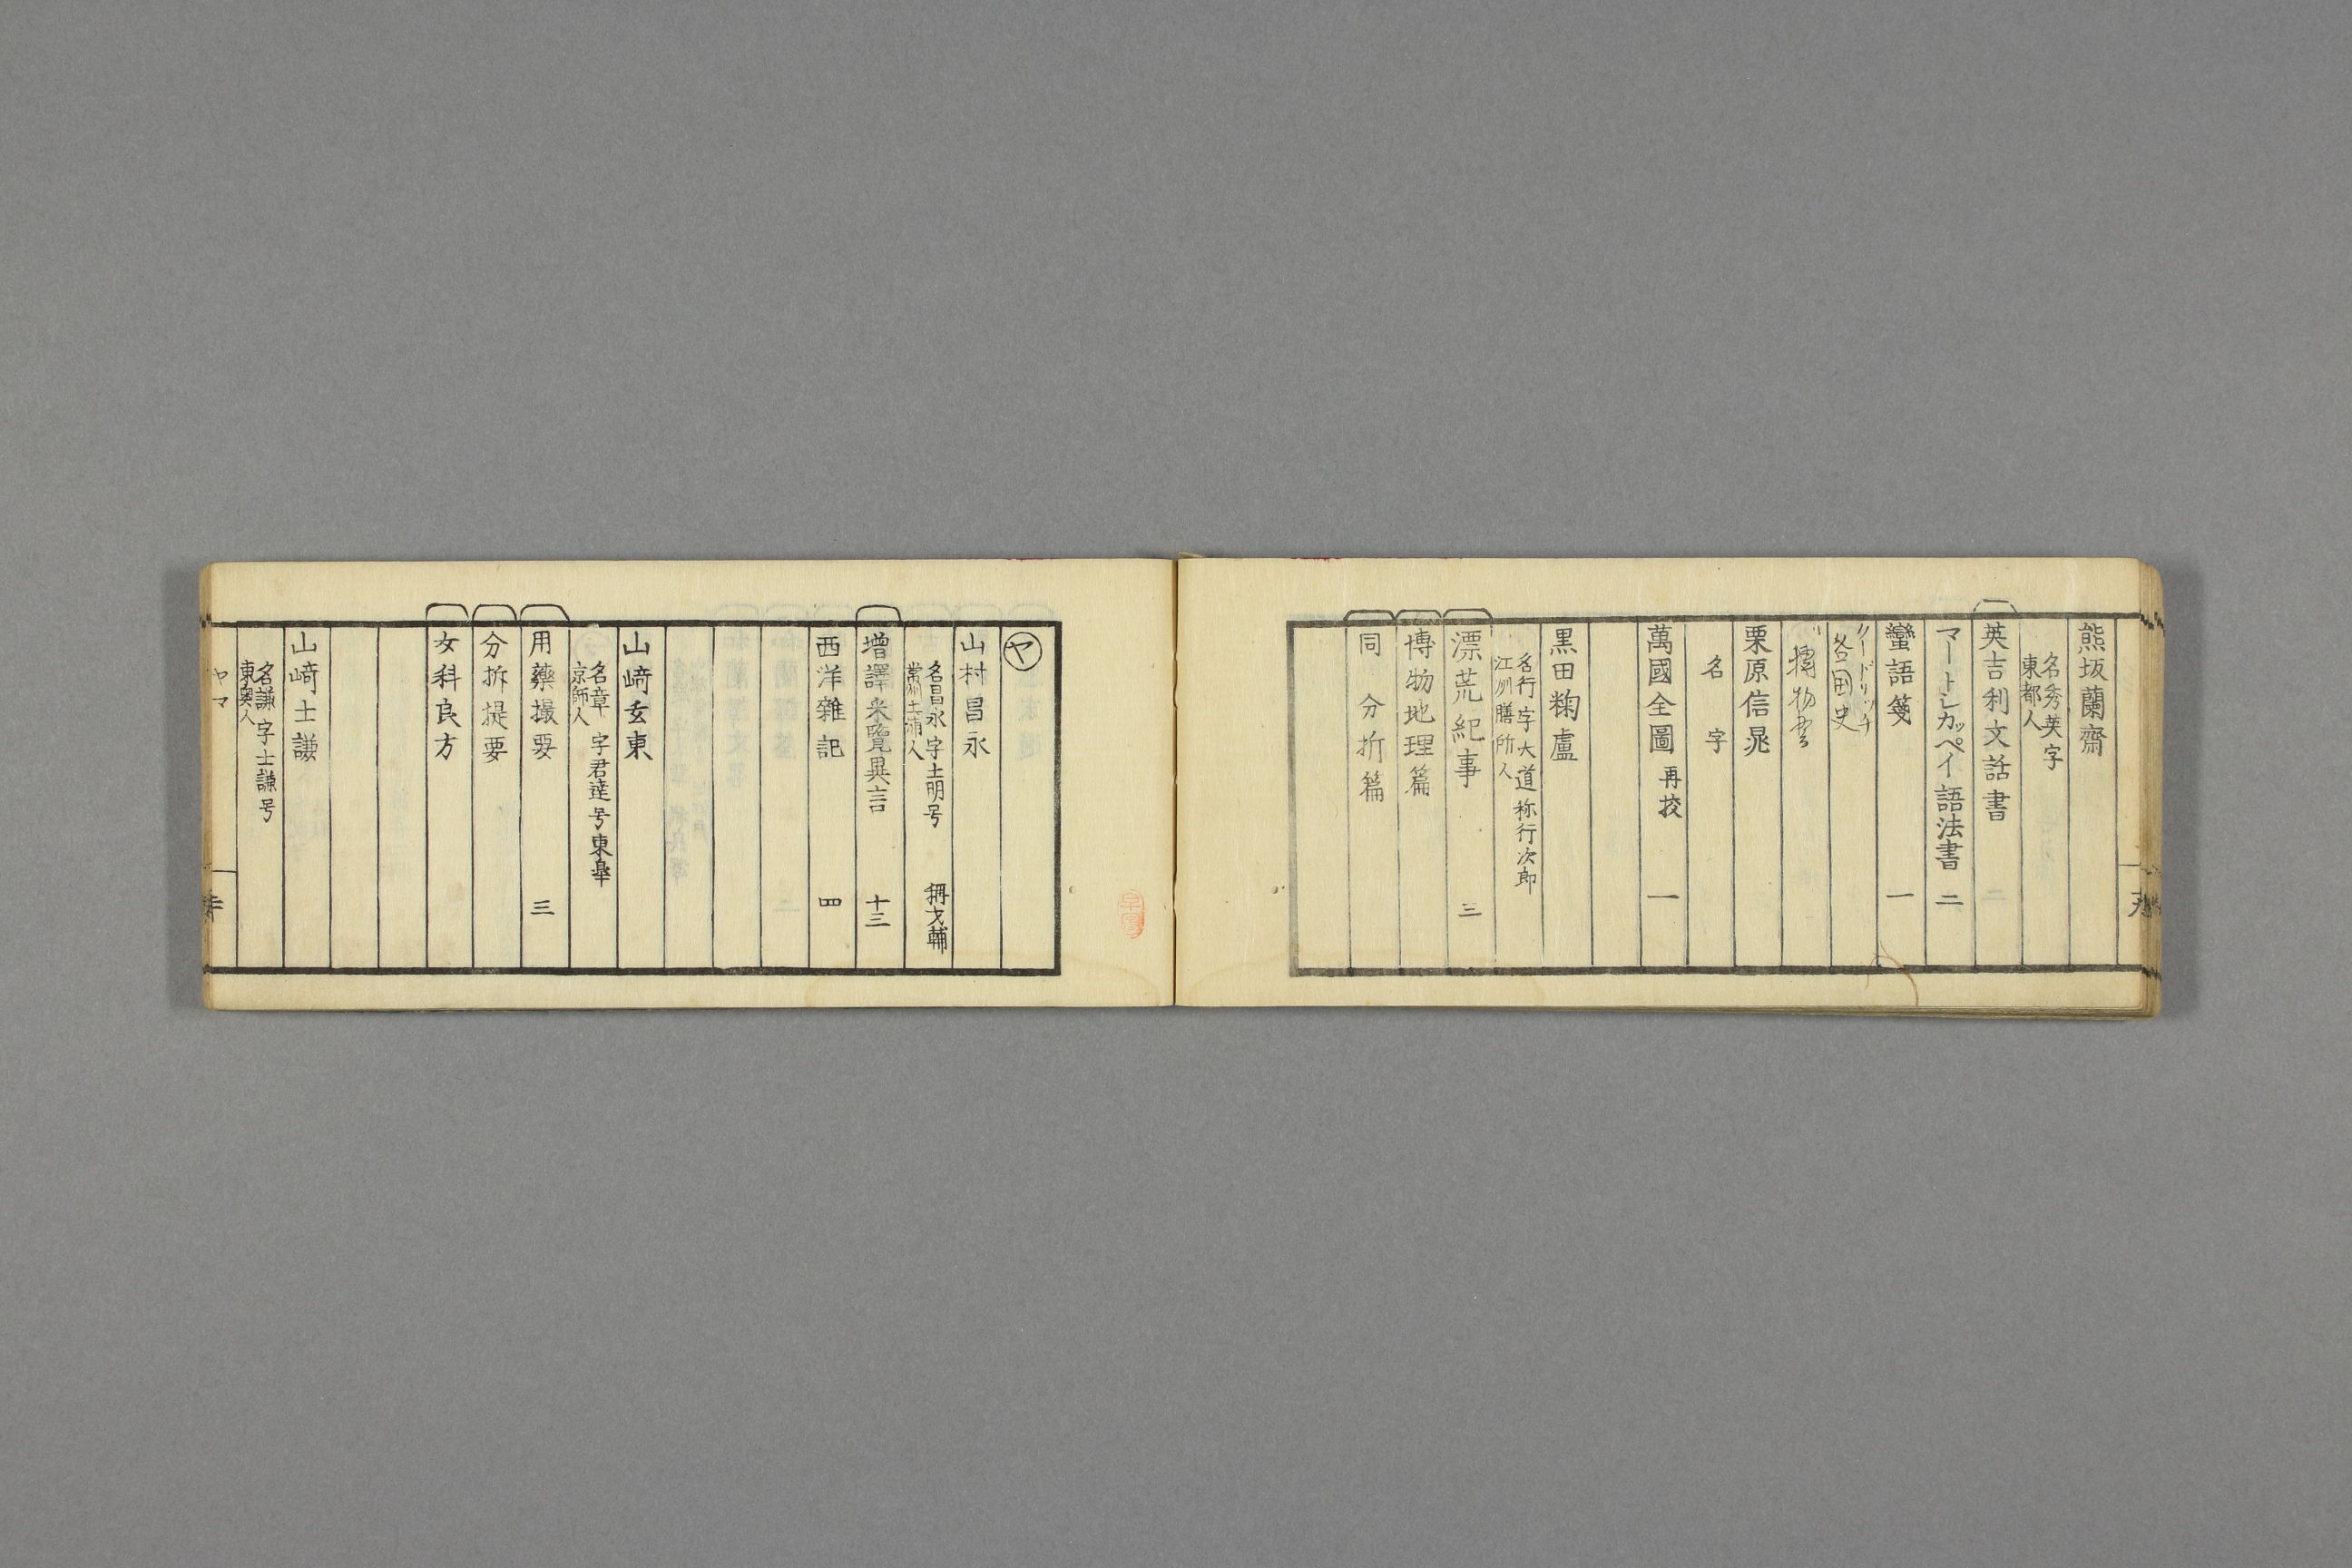 熊坂蘭齋
名秀英字
東都人
英吉利文話書 二
マートシカッペイ語法書 二
蠻語箋 一
各国史
博物書
栗原信晁
名 字
萬國全圖 再挍 一
黒田麹盧
名行字大道称行次郎
江州膳所人
漂荒紀事 三
博物地理篇
同 分析篇
ヤ
山村昌永
名昌永字士明号 稱才輔
常州土浦人
増譯采覽異言 十三
西洋雜記 四
山﨑玄東
名章 字君達号東皐
京師人
用藥撮要 三
分拆提要
女科良方
山﨑士謙
名謙字士謙号
東奥人
ヤマ